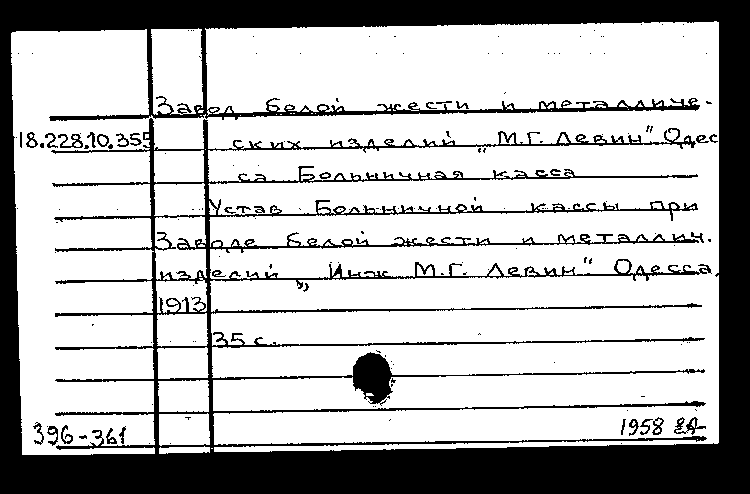 Завод белой жести и металличе-
18.228.10.355 ских изделий „М.Г. Левин" Одес
са Больничная касса
Устав Больничной кассы при
Заводе белой жести и металлич.
изделий „Инж М.Г. Левин" Одесса,
1913.
35 с.
396-361 1958